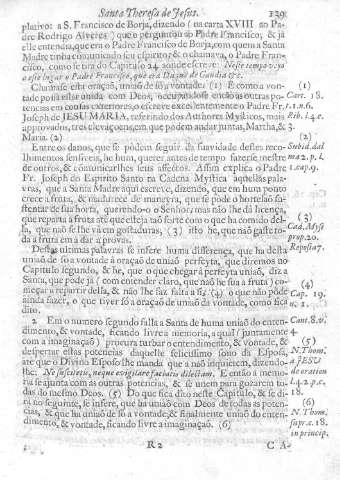 Santa Theresa de Jesus. 129
plativo: a S. Francisco de Borja, dizendo (na carta XVIII ao Pa-
dre Rodrigo Alveres) que o perguntou ao Padre Francisco, & já
elle entendia, que era o Padre Francisco de Borja, com quem a Santa
Madre tinha comunicado seu espirito; & o chamava, o Padre Fran-
cisco, como se tira do Capitulo 24. onde escreve: Neste tempo veyo
a este lugar o Padre Francisco, que era Duque de Gandia &c.
Chamase esta oraçaõ, uniaõ de só a vontade: (1) E como a von-
tade possa estar unida com Deos, occupandose entaõ as outras po-
tencias em cousas exteriores, o escreve excellentemente o Padre Fr.
Joseph de JESU MARIA, referindo dos Authores Mysticos, mais
approvados, tres elevaçoens, em que podem andar juntas, Martha, &
Maria. (2)
Entre os danos, que se pódem seguir da suavidade destes reco-
lhimentos sensiveis, he hum, querer antes de tempo fazerse mestre
de outros, & comunicarlhes seus affectos. Assim explica o Padre
Fr. Joseph do Espirito Santo na Cadena Mystica aquellas pala-
vras, que a Santa Madre aqui escreve, dizendo, que em hum ponto
crece a fruta, & madurece de maneyra, que se póde o hortelaõ sus-
tentar de sua horta, querendo-o o Senhor; mas não lhe dá licença,
que reparta a fruta até que esteja taõ forte com o que ha comido del-
la, que naõ se lhe vá em gostaduras, (3) isto he, que naõ gaste to-
da a fruta em a dar a provar.
Destas ultimas palavras se infere huma differença, que ha desta
uniaõ de só a vontade á oraçaõ de uniaõ perfeyta, que diremos no
Capitulo segundo, & he, que o que chegar á perfeyta uniaõ, diz a
Santa, que póde já (com entender claro, que naõ he sua a fruta) co-
meçar a repartir della, & naõ lhe faz falta a si; (4) o que naõ póde
ainda fazer, o que tiver só a oraçaõ de uniaõ da vontade, como fica
dito.
2 Em o numero segundo falla a Santa de huma uniaõ do enten-
dimento, & vontade, ficando livre a memoria, a qual (juntamente
com a imaginaçaõ) procura turbar o entendimento, & vontade, &
despertar estas potencias daquelle felicissimo sono da Esposa,
até que o Divino Esposo lhe manda que a naõ inquietem, dizendo-
lhe: Ne suscitetis, neque evigilare faciatis dilectam. E entaõ a memo-
ria se ajunta com as outras potencias, & se unem para gozarem to-
das do mesmo Deos. (5) Do que fica dito neste Capitulo, & se di-
rá no seguinte, se infere, que ha uniaõ com Deos de todas as poten-
cias, & que ha uniaõ de só a vontade; & finalmente uniaõ do enten-
dimento, & vontade, ficando livre a imaginaçaõ. (6)
R2 CA-
(1)
Cart. 18.
(2)
(3)
Cad. Myst
prop. 20.
Reposta 7.
(4)
Cap. 19.
n. 1.
Cant. 8. v.
4.
(5)
N. Thom.
a JESU
de oration
l. 4. 2. p. c.
18.
(6)
N. Thom.
supr. c. 18.
in princip.